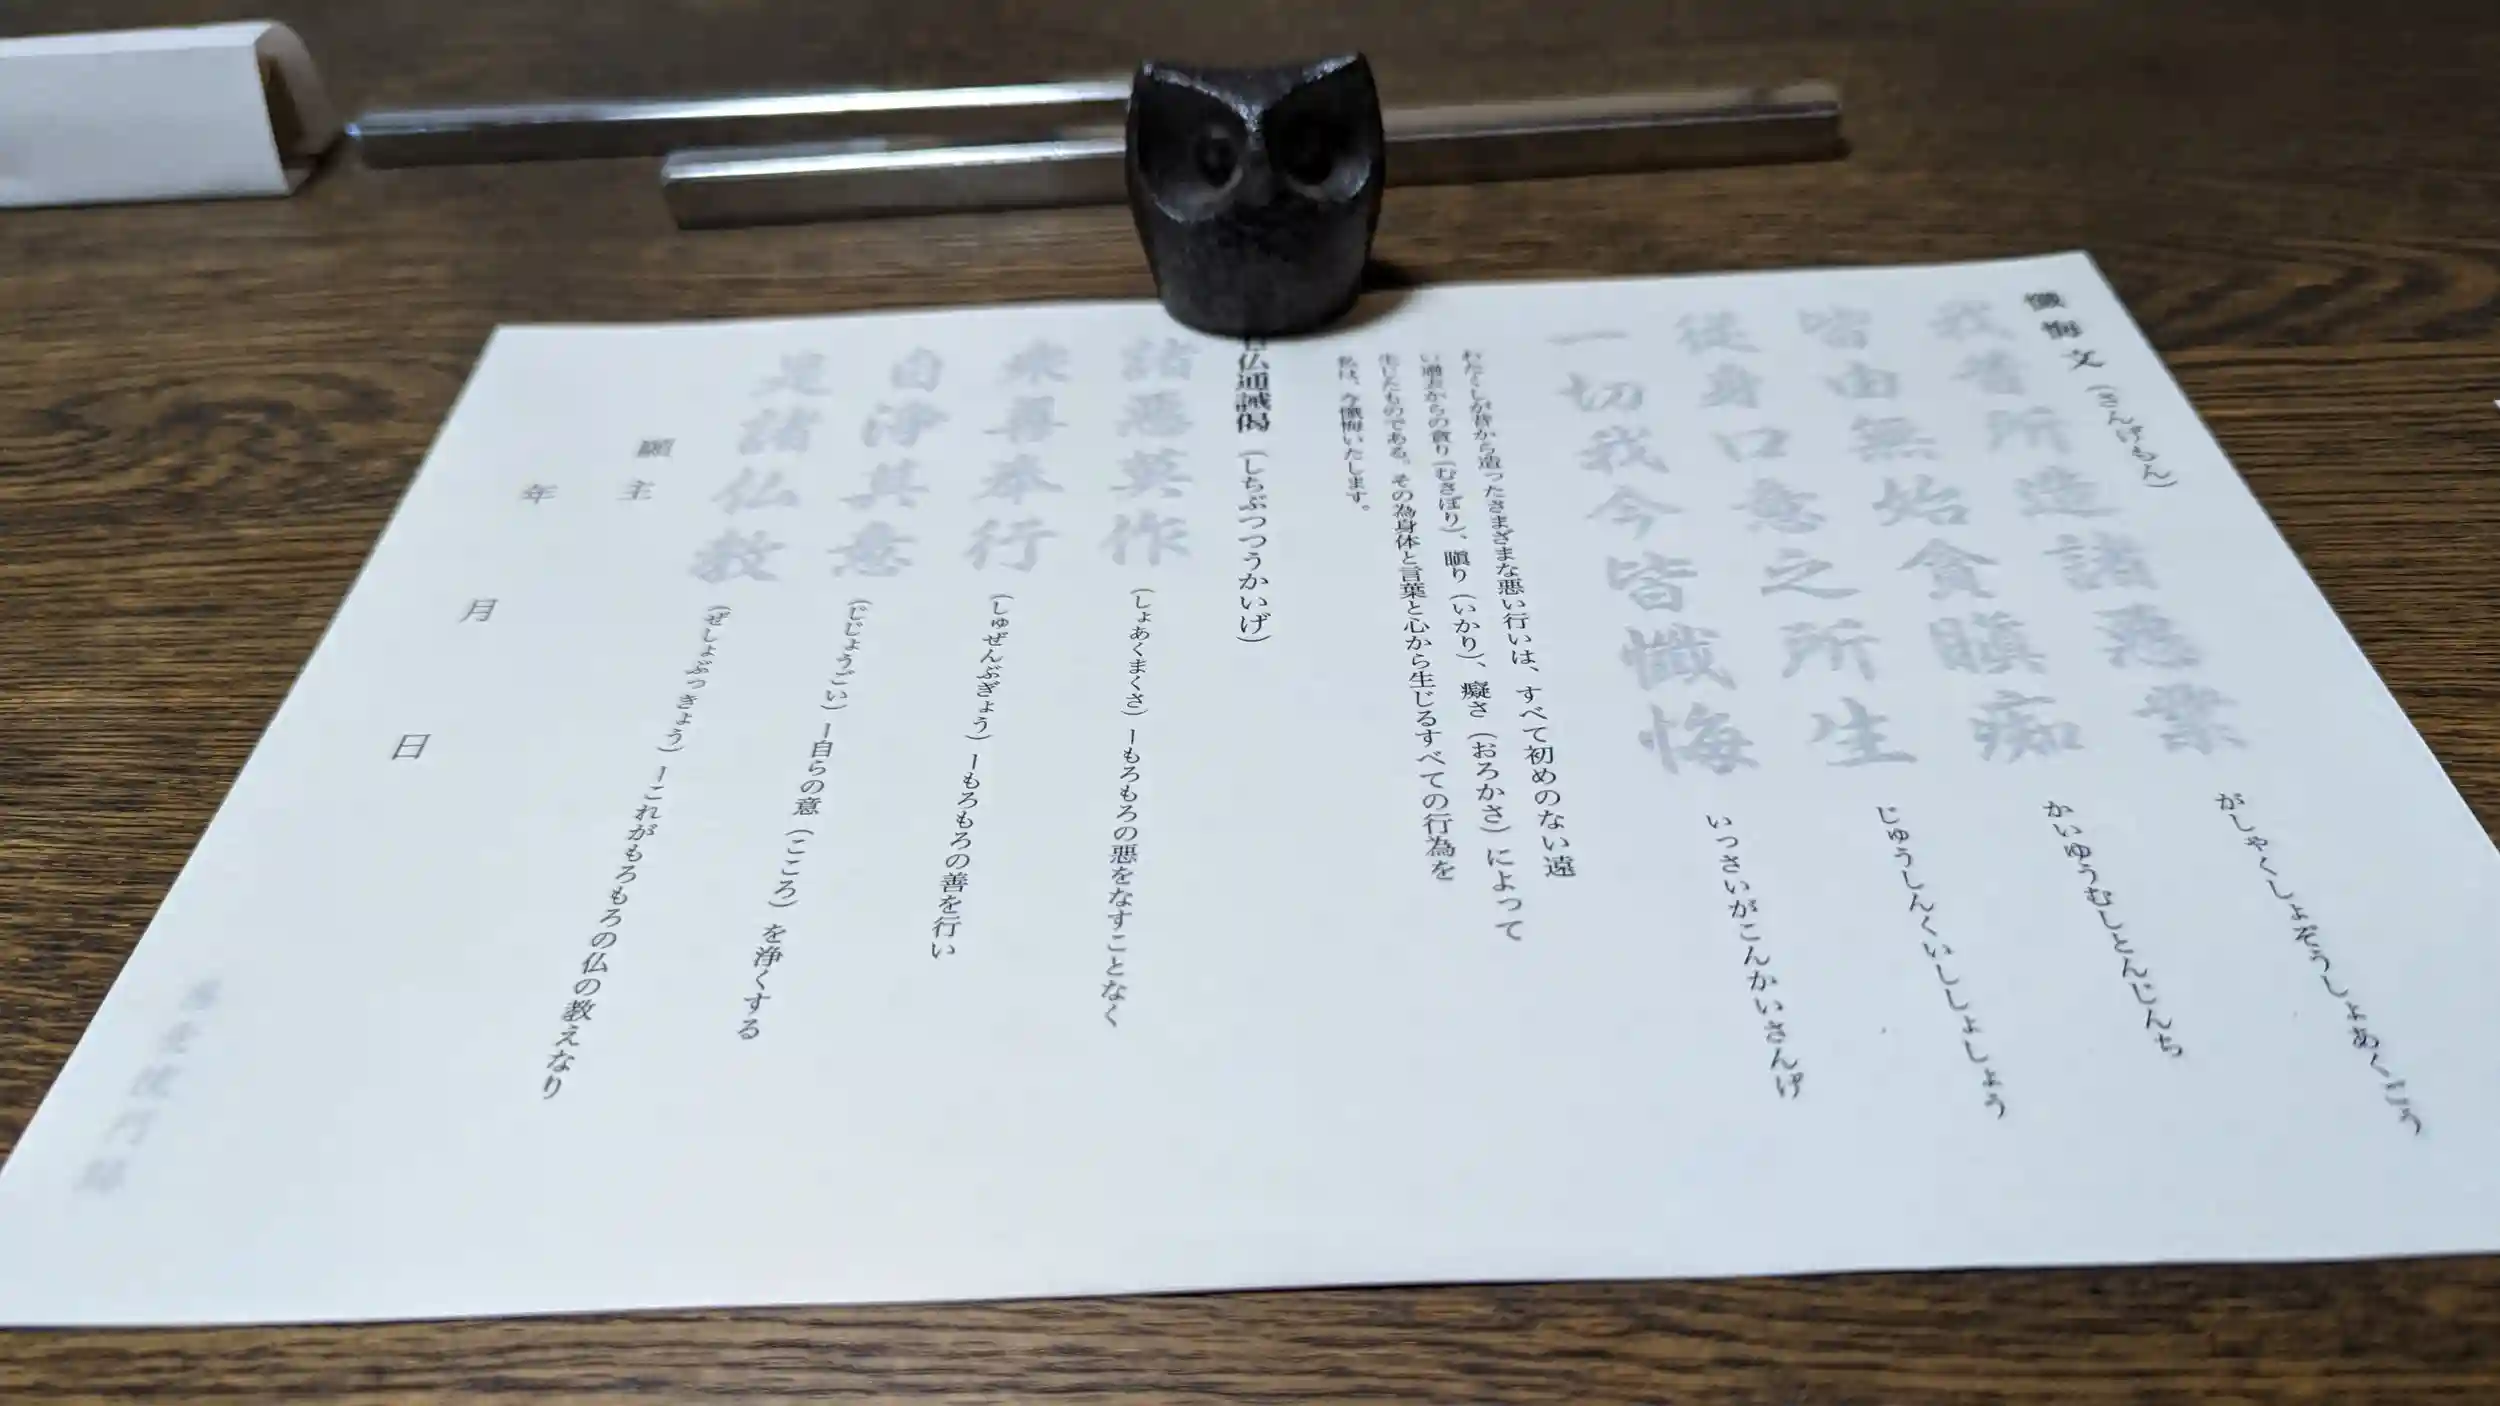 懺悔文（さんげもん）
我昔所造諸悪業 がしゃくしょぞうしょあくごう
皆由無始貪瞋痴 かいゆうむしとんじんち
従身口意之所生 じゅうしんくいししょしょう
一切我今皆懺悔 いっさいがこんかいさんげ
わたくしが昔から造ったさまざまな悪い行いは、すべて初めのない遠
い過去からの貪り（むさぼり）、瞋り（いかり）、癡さ（おろかさ）によって
生じたものである。その為身体と言葉と心から生じるすべての行為を
私は、今懺悔いたします。
仏通誡偈（しちぶつつうかいげ）
諸悪莫作（しょあくまくさ）ーもろもろの悪をなすことなく
衆善奉行（しゅぜんぶぎょう）ーもろもろの善を行い
自浄其意（じじょうごい）ー自らの意（こころ）を浄くする
是諸仏教（ぜしょぶっきょう）ーこれがもろもろの仏の教えなり
願主
年 月 日